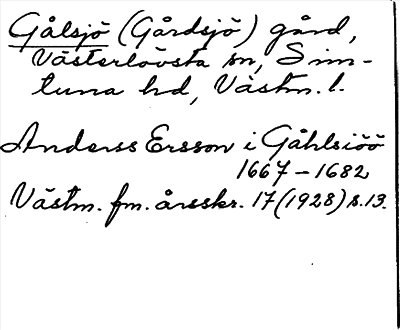 Gålsjö (Gårdsjö) gård,
Västerlövsta sn, Sim-
tuna hd, Västm. l.
Anderss Ersson i Gåhlsiöö
1667-1682
Västm. fm. årsskr. 17 (1928) s. 13.